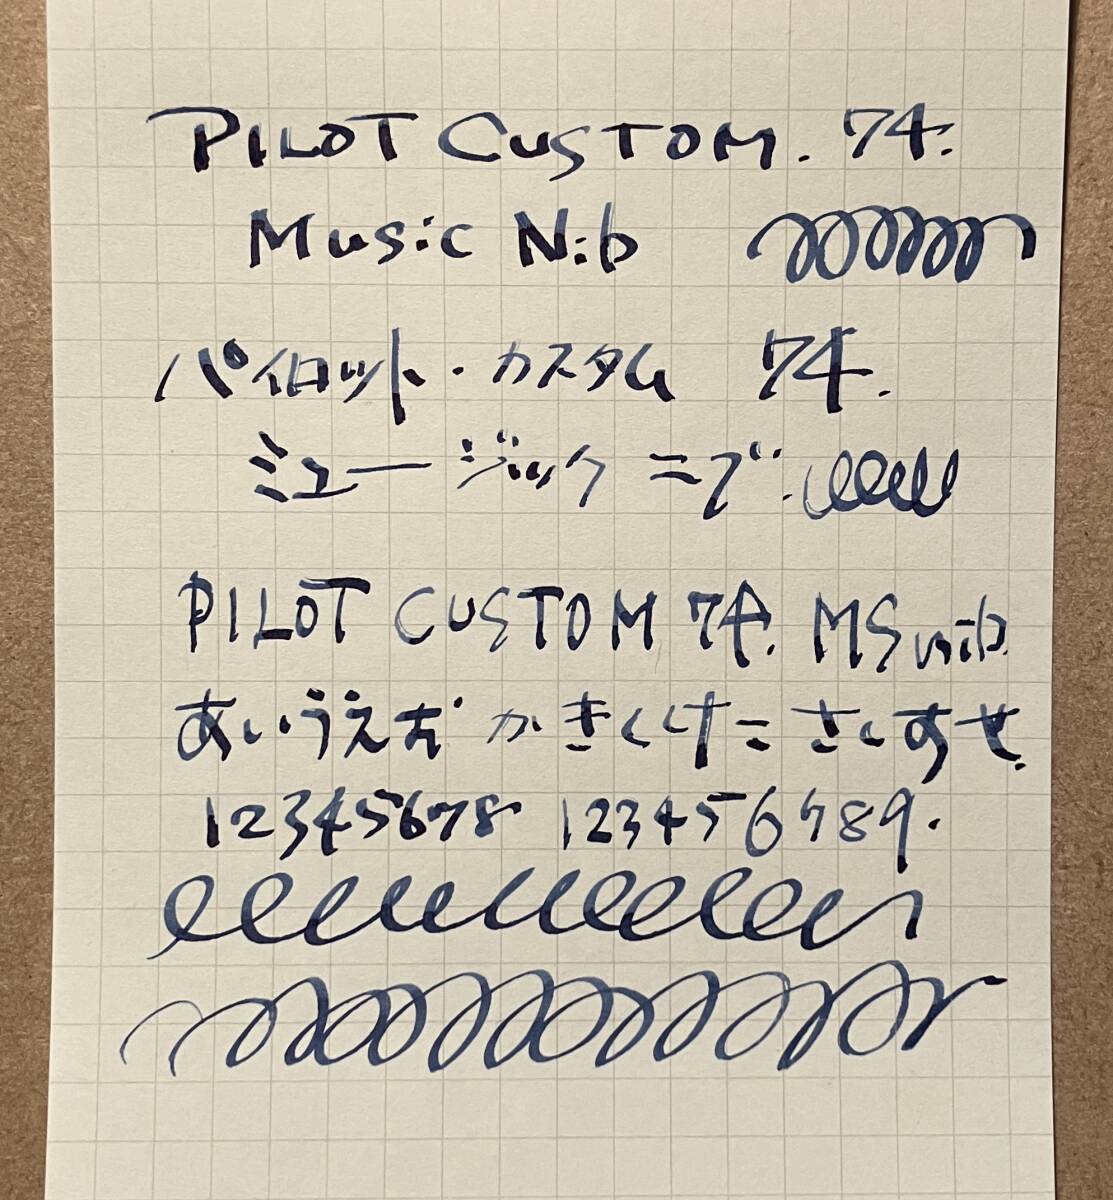 PILOT CUSTOM. 74.
Music Nib
パイロット・カスタム 74.
ミュージック ニブ.
PILOT CUSTOM 74. MS nib.
あいうえお かきくけこ さしすせ.
12345678 123456789.